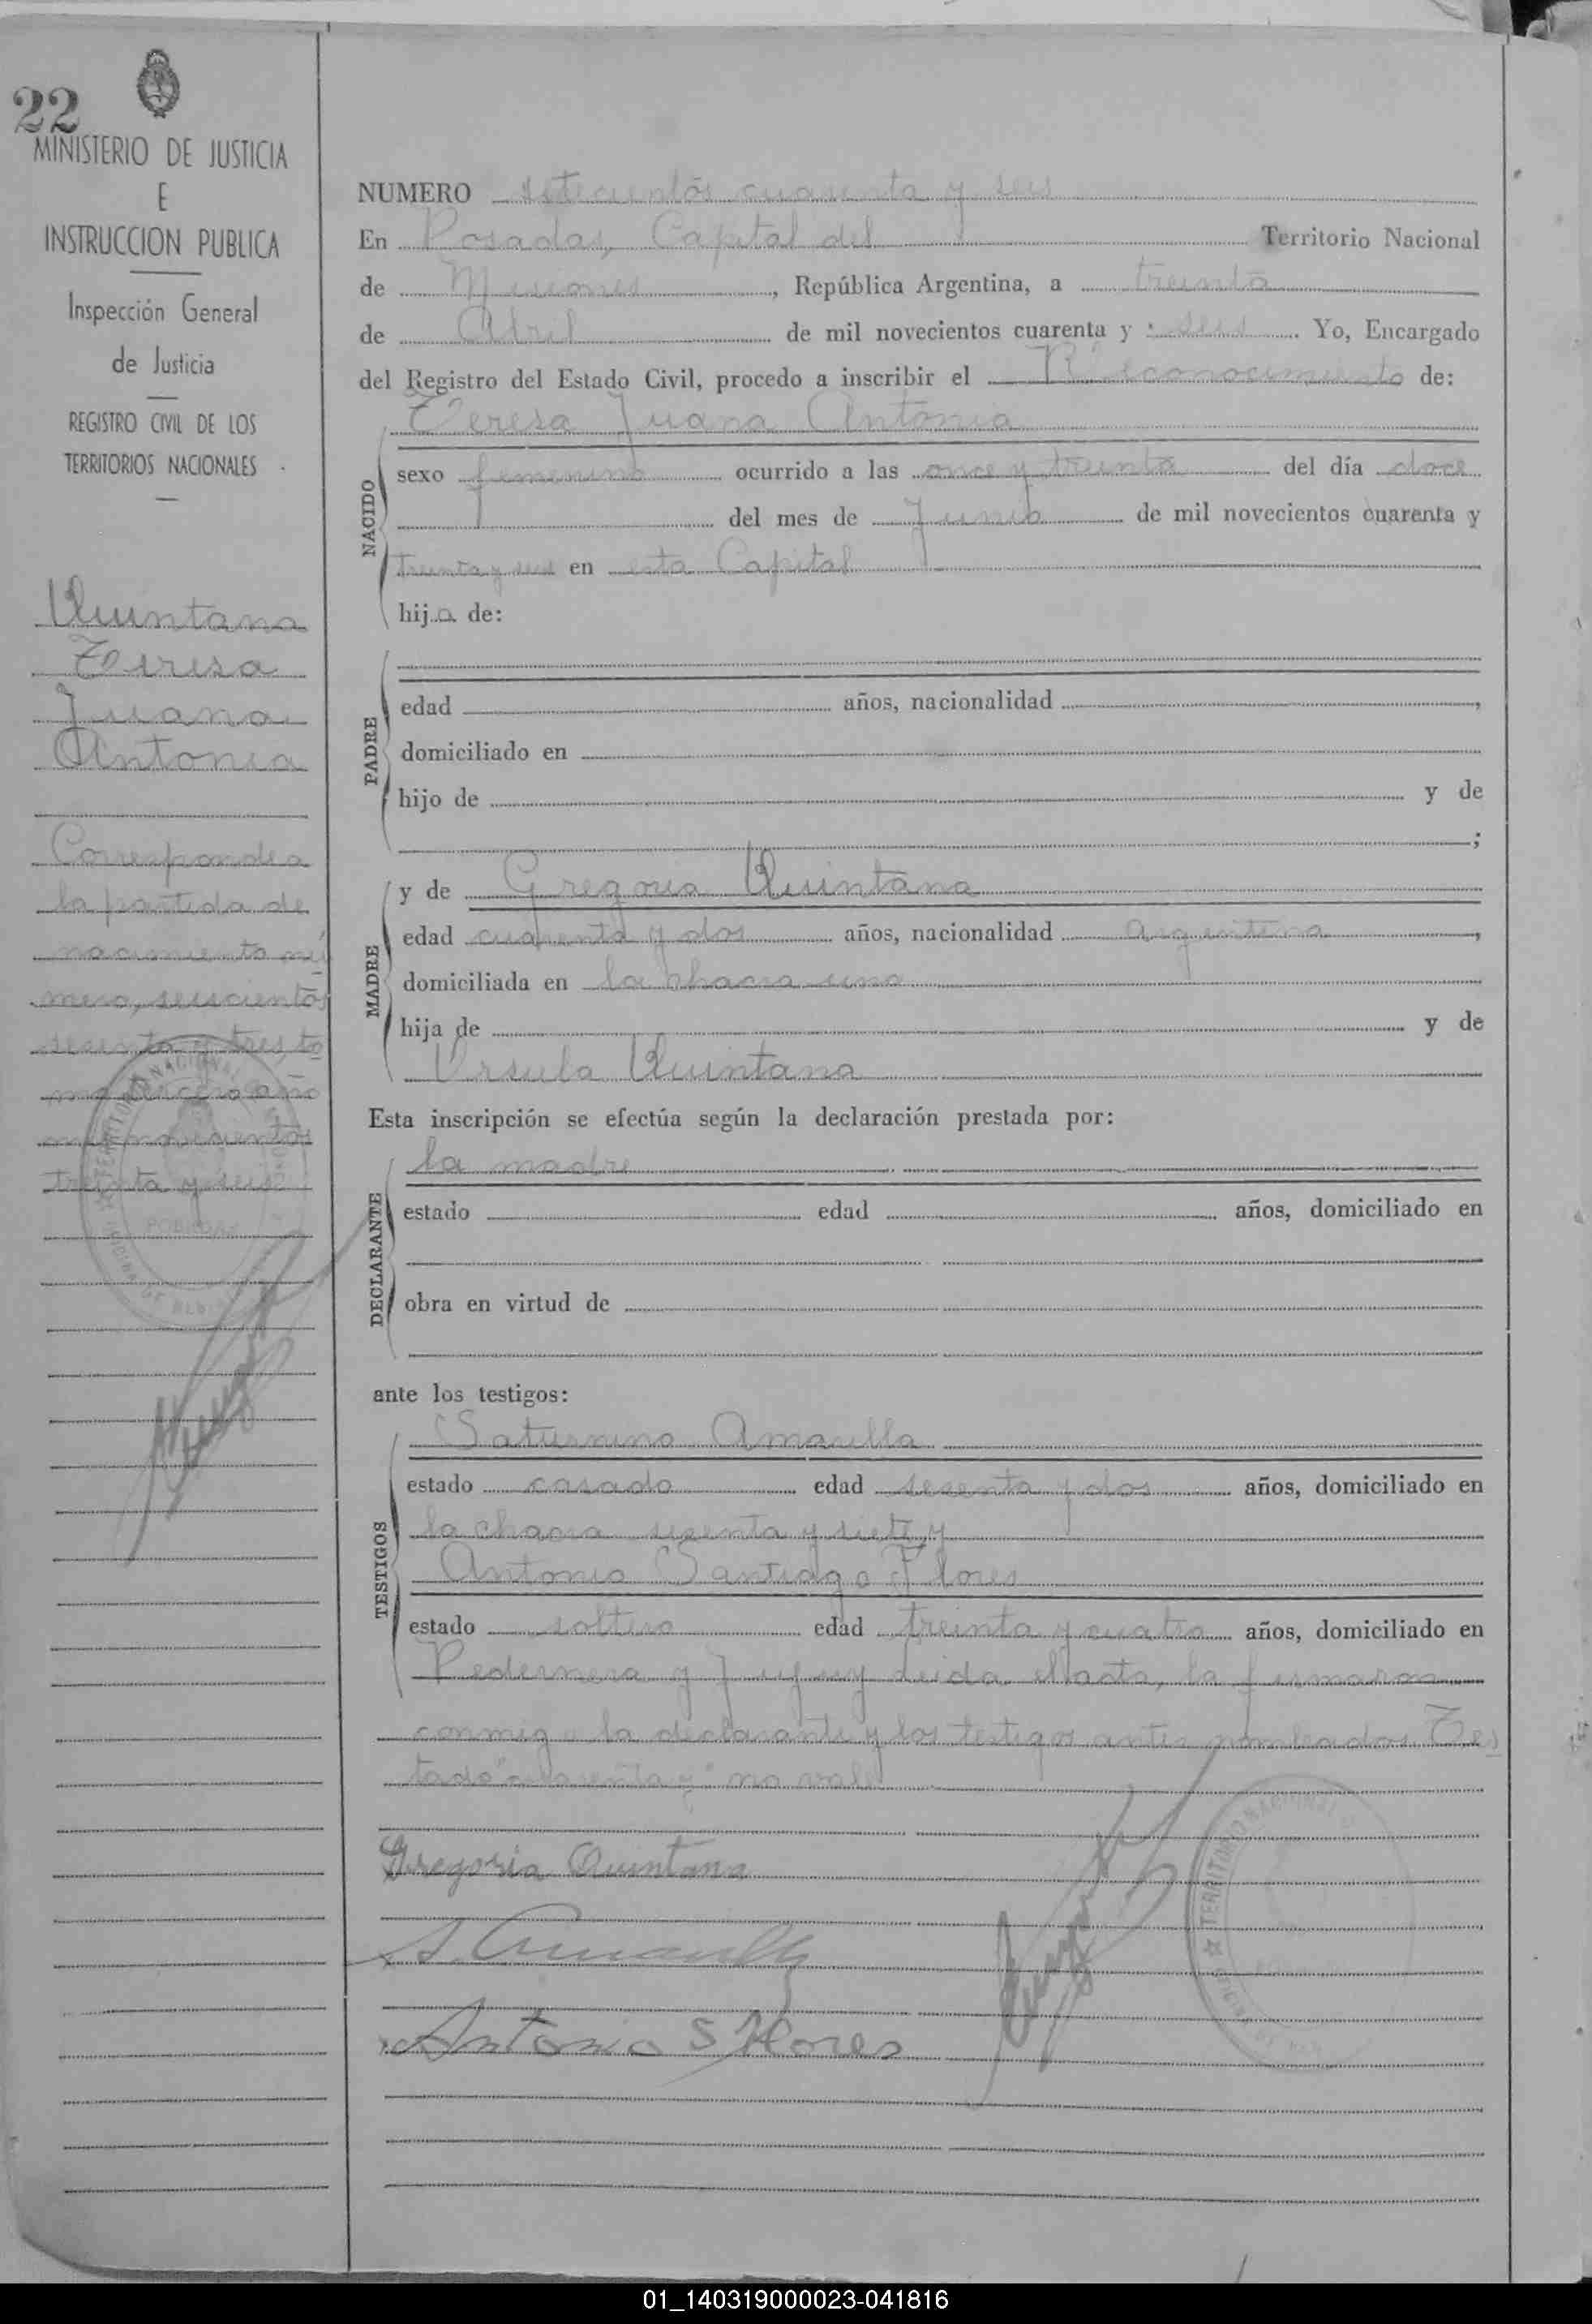 22
MINISTERIO DE JUSTICIA
E
INSTRUCCION PUBLICA
Inspección General
de Justicia
REGISTRO CIVIL DE LOS
TERRITORIOS NACIONALES
Quintana
Teresa
Juana
Antonia
Corresponde a
la partida de
nacimiento nú
mero, seiscientos
sesenta y tres, to
mo tercero año
mil novecientos
treinta y seis
NUMERO setecientos cuarenta y seis
En Posadas, Capital del Territorio Nacional
de Misiones, República Argentina, a treinta
de Abril de mil novecientos cuarenta y seis. Yo, Encargado
del Registro del Estado Civil, procedo a inscribir el Reconocimiento de:
NACIDO
Teresa Juana Antonia
sexo femenino ocurrido a las once y treinta del día doce
del mes de Junio de mil novecientos cuarenta y
treinta y seis en esta Capital
hija de:
PADRE
edad años, nacionalidad ,
domiciliado en
hijo de y de
;
MADRE
y de Gregoria Quintana
edad cuarenta y dos años, nacionalidad argentina,
domiciliada en la chacra uno
hija de y de
Ursula Quintana
Esta inscripción se efectúa según la declaración prestada por:
DECLARANTE
la madre
estado edad años, domiciliado en
obra en virtud de
ante los testigos:
TESTIGOS
Saturnino Amarilla
estado casado edad sesenta y dos años, domiciliado en
la chacra sesenta y siete y
Antonio Santiago Flores
estado soltero edad treinta y cuatro años, domiciliado en
Pedernera y Jujuy Leida el acta, la firmaron
conmigo la declarante y los testigos antes nombrados. Tes
tado "cuarenta y" no vale
Gregoria Quintana
S. Amarilla
Antonio S Flores
TERRITORIO NACIONAL
POSADAS
01_140319000023-041816